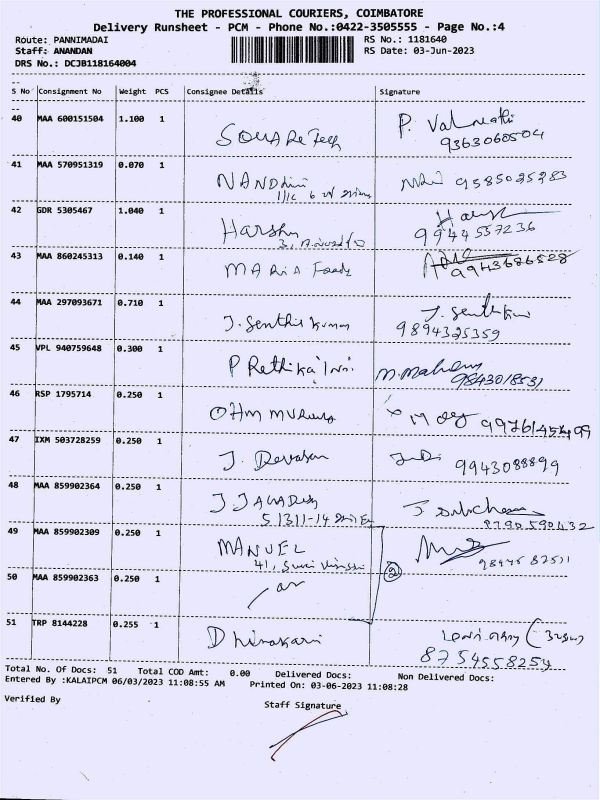 THE PROFESSIONAL COURIERS, COIMBATORE
Delivery Runsheet - PCM - Phone No.:0422-3505555 - Page No.:4
Route: PANNIMADAI RS No.: 1181640
Staff: ANANDAN RS Date: 03-Jun-2023
DRS No.: DCJB118164004
S No Consignment No Weight PCS Consignee Details Signature
40 MAA 600151504 1.100 1 P.
9363060504
41 MAA 570951319 0.070 1 NANDhini 9585025283
42 GDR 5305467 1.040 1 Harshu
9944557236
43 MAA 860245313 0.140 1 MARIA Foods 9943686528
44 MAA 297093671 0.710 1 J. Senthil kumar J. Senthil
9894325359
45 VPL 940759648 0.300 1 P Rethika
9843018531
46 RSP 1795714 0.250 1 OHM
47 IXM 503728259 0.250 1 J. Devasan 9943088899
48 MAA 859902364 0.250 1 J
8790590432
49 MAA 859902309 0.250 1 MANUEL
41,
50 MAA 859902363 0.250 1 2
51 TRP 8144228 0.255 1 Dhinakaran
8754558254
Total No. Of Docs: 51 Total COD Amt: 0.00 Delivered Docs: Non Delivered Docs:
Entered By :KALAIPCM 06/03/2023 11:08:55 AM Printed On: 03-06-2023 11:08:28
Verified By Staff Signature